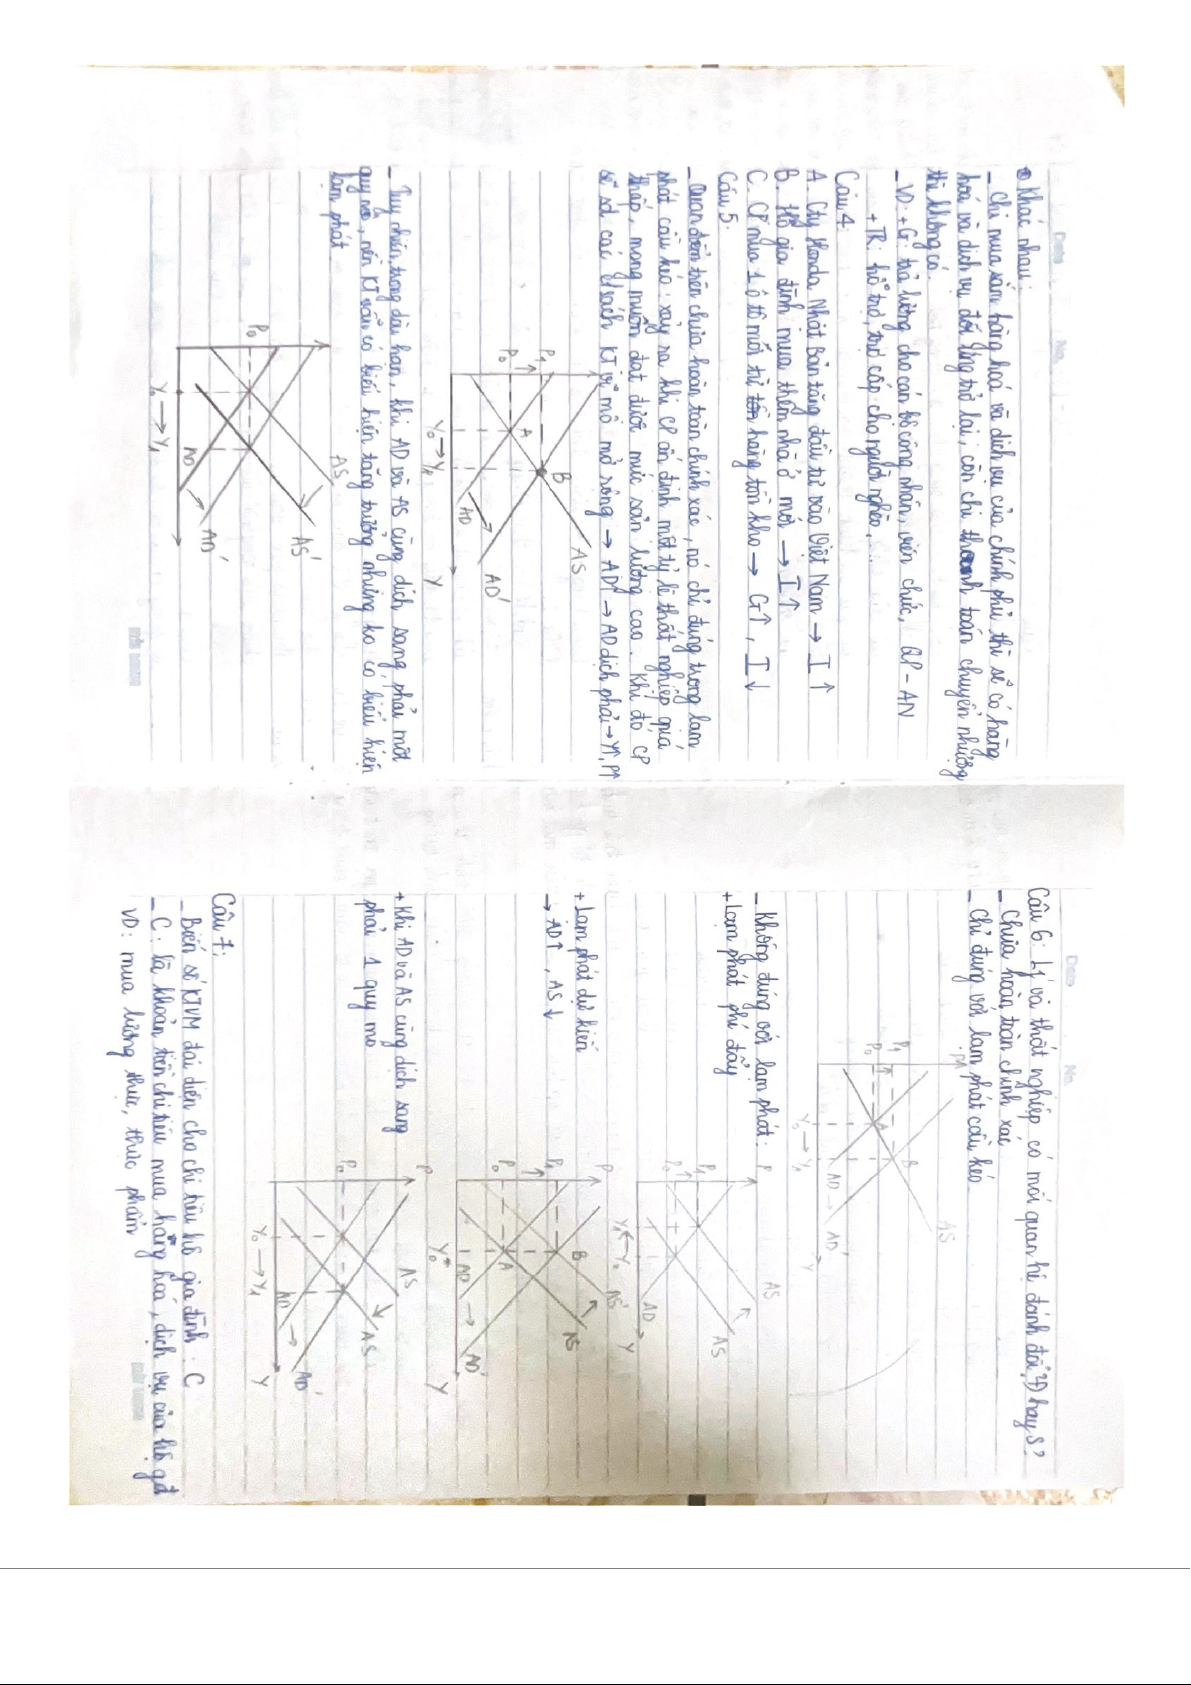 * Khác nhau:
- Chi mua sắm hàng hoá và dịch vụ của chính phủ thì sẽ có hàng
hoá và dịch vụ đối ứng trở lại, còn chi thanh toán chuyển nhượng
thì không có.
- VD: + G: trả lương cho cán bộ công nhân, viên chức, QP - AN
+ TR: hỗ trợ, trợ cấp cho người nghèo,...
Câu 4:
A. Cty Honda Nhật Bản tăng đầu tư vào Việt Nam → I↑
B. Hộ gia đình mua thêm nhà ở mới → I↑
C. CP mua 1 ô tô mới từ hàng tồn kho → G↑, I↓
Câu 5:
- Quan điểm trên chưa hoàn toàn chính xác, nó chỉ đúng trong lạm
phát cầu kéo: xảy ra khi CP ổn định một tỷ lệ thất nghiệp quá
thấp, mong muốn đạt được mức sản lượng cao. Khi đó CP
sẽ sd các c/sách KT vĩ mô mở rộng → AD↑ → AD dịch phải → Y↑, P↑
P₁
P₀
A
B
AS
AD
AD'
Y₀ → Y₁
Y
- Tuy nhiên trong dài hạn, khi AD và AS cùng dịch sang phải một
quy mô, nền KT vẫn có biểu hiện tăng trưởng nhưng ko có biểu hiện
lạm phát
P₀
AS
AS'
AD
AD'
Y₀ → Y₁
Câu 6: LP và thất nghiệp có mối quan hệ đánh đổi, Đ hay S?
- Chưa hoàn toàn chính xác
- Chỉ đúng với lạm phát cầu kéo
P
P₁
P₀
A
B
AS
AD → AD'
Y₀ → Y₁
Y
- Không đúng với lạm phát:
+ Lạm phát phí đẩy
P
P₁
P₀
AS'
AS
AD
Y₁ ← Y₀
Y
+ Lạm phát dự kiến
→ AD↑, AS↓
P
P₁
P₀
A
B
AS'
AS
AD → AD'
Y₀*
Y
+ Khi AD và AS cùng dịch sang
phải 1 quy mô
P
P₀
AS
AS'
AD → AD'
Y₀ → Y₁
Y
Câu 7:
- Biến số KTVM đại diện cho chi tiêu hộ gia đình: C
- C: là khoản tiền chi tiêu mua hàng hoá, dịch vụ của hộ gđ
VD: mua lương thực, thực phẩm